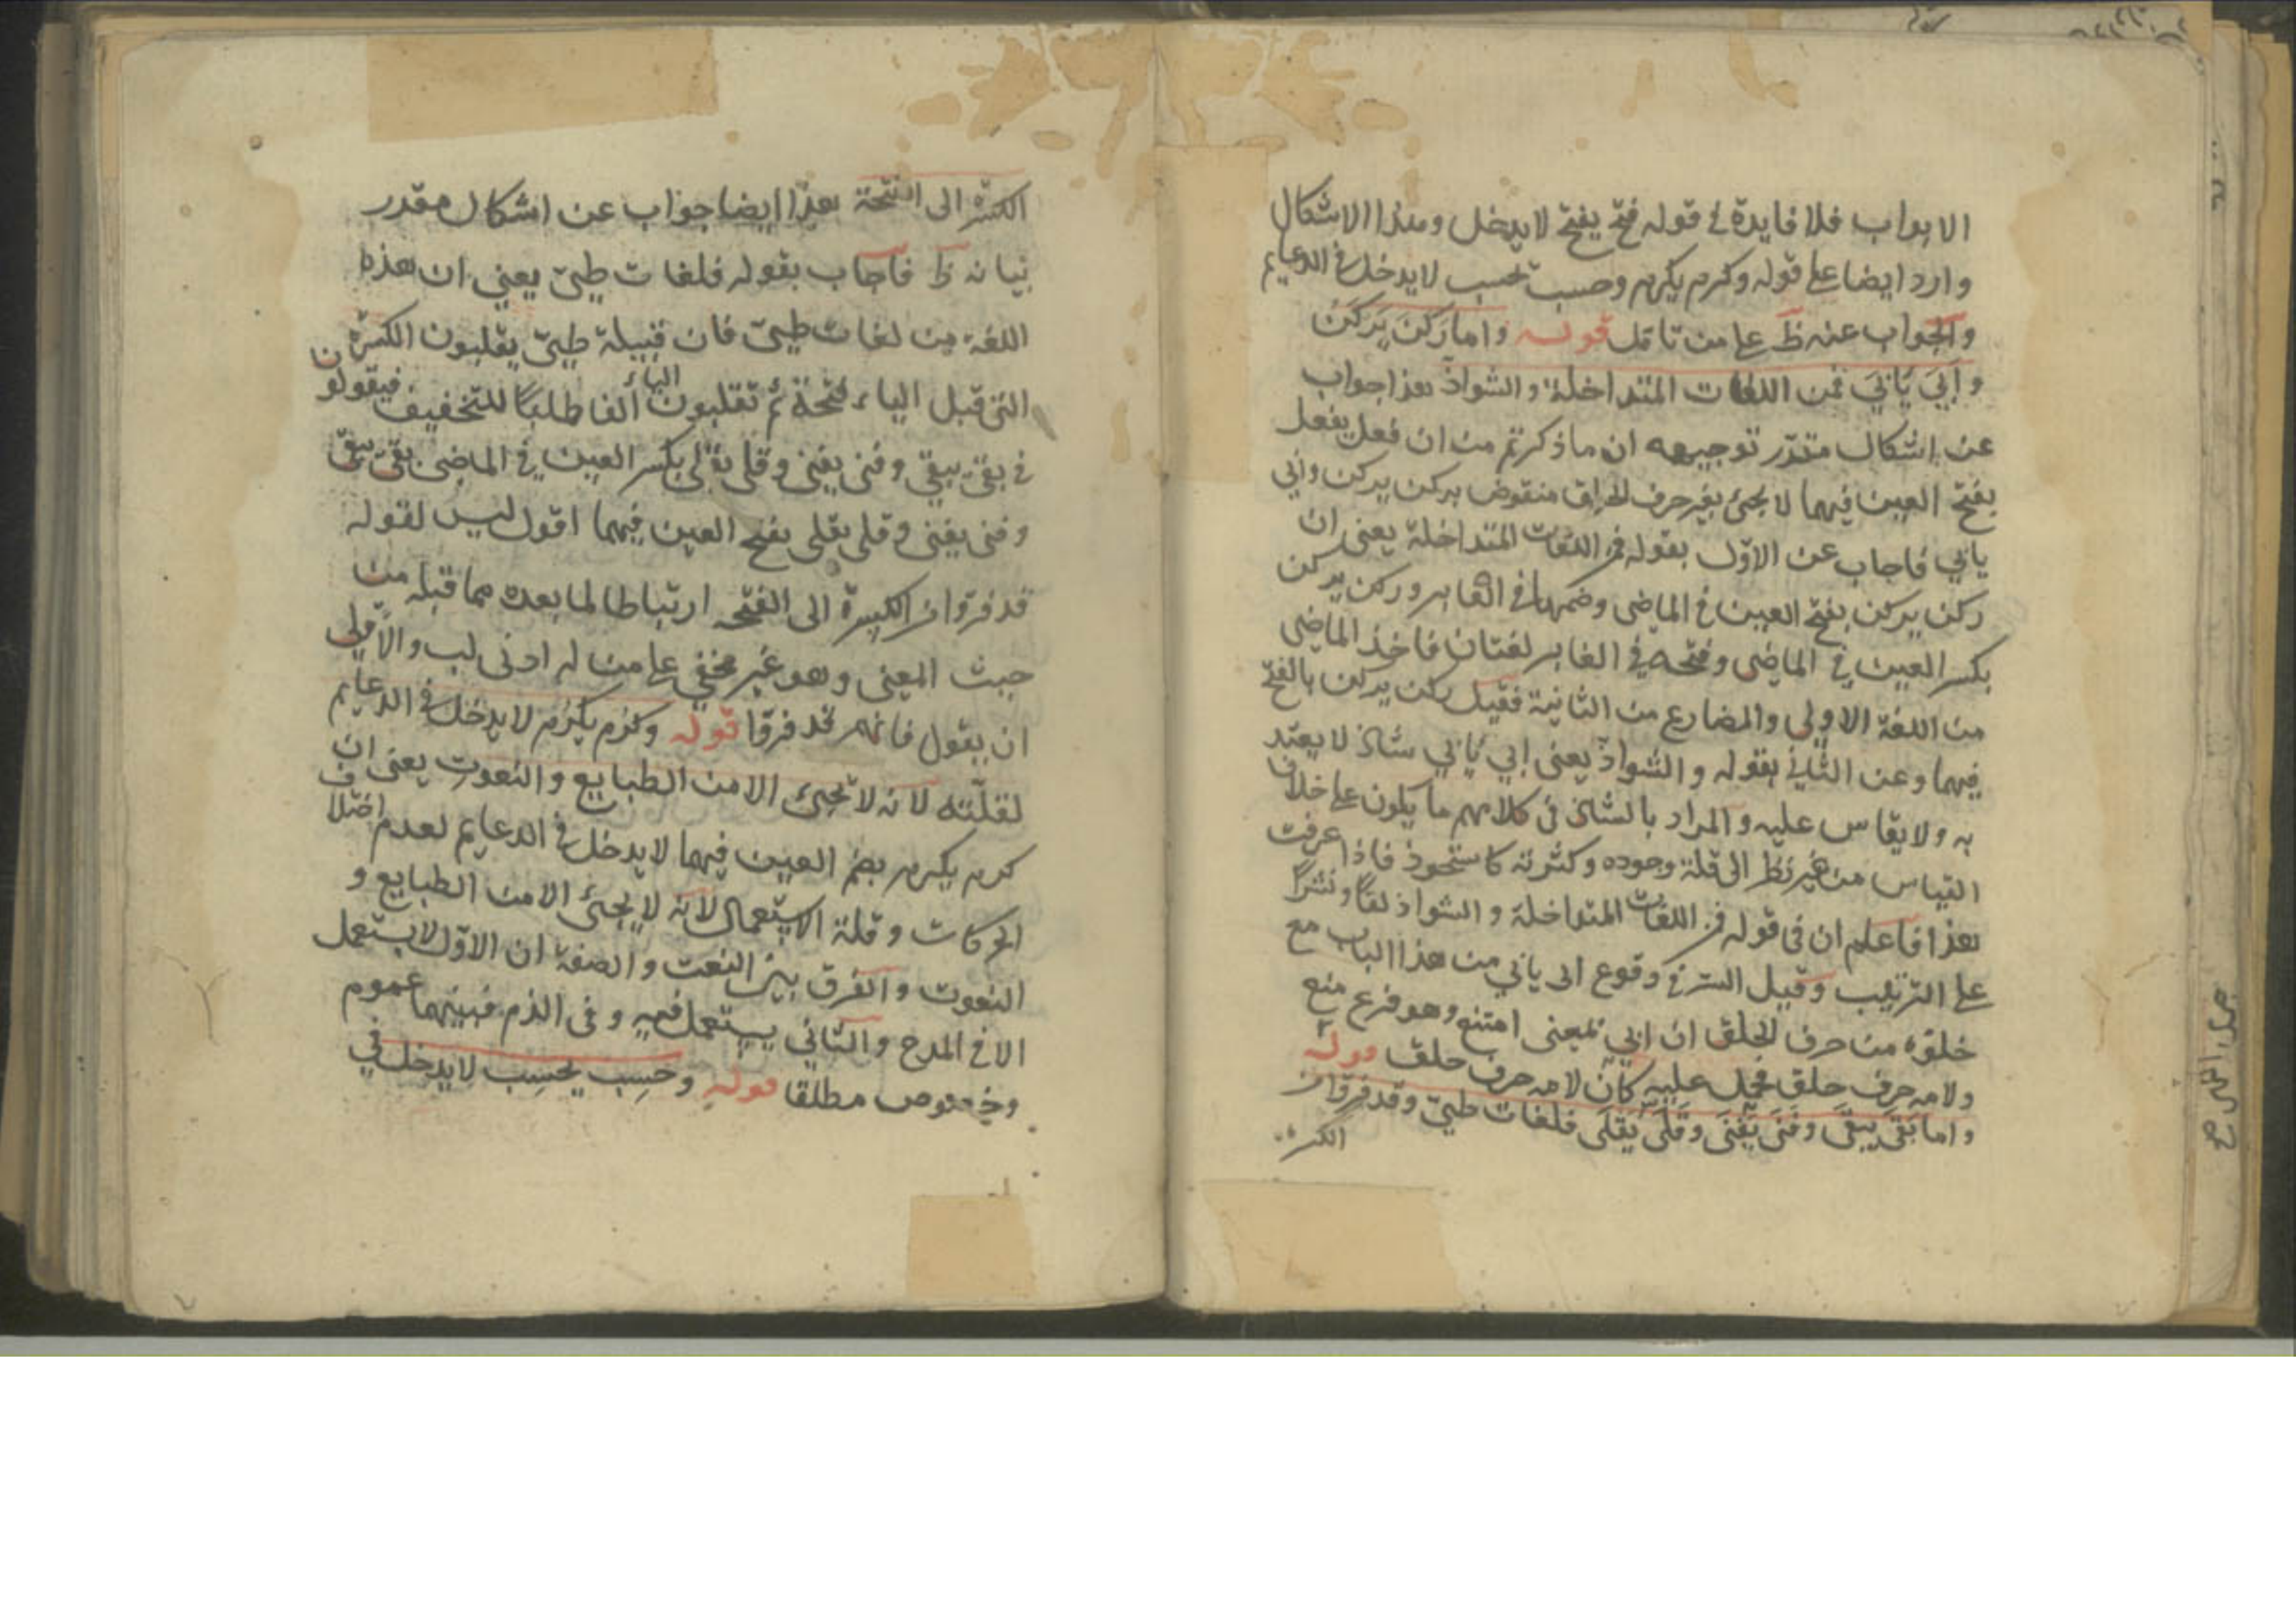 الابواب فلا فايدة في قوله فتح يفتح لا يدخل وهذا الاشكال
وارد ايضا على قوله وكرم يكرم وحسب يحسب لا يدخل في الدعايم
والجواب عنه ظ على من تامل قوله واما ركن يركن
وابى يأبى فمن اللغات المتداخلة والشواذ هذا جواب
عن اشكال مقدر توجيهه ان ما ذكرتم من ان فعل يفعل
بفتح العين فيهما لا يجئ بغير حرف الحلق منقوض بركن يركن وابي
يابي فاجاب عن الاول بقوله فمن اللغات المتداخلة يعني ان
ركن يركن بفتح العين في الماضي وضمها في الغابر وركن يركن
بكسر العين في الماضي وفتحه في الغابر لغتان فاخذ الماضي
من اللغة الاولى والمضارع من الثانية فقيل ركن يركن بالفتح
فيهما وعن الثاني بقوله والشواذ يعني ابي يأبي شاذ لا يعتد
به ولا يقاس عليه والمراد بالشاذ في كلامهم ما يكون على خلاف
القياس من غير نظر الى قلة وجوده وكثرته كاستحوذ فاذا عرفت
هذا فاعلم ان في قوله فمن اللغات المتداخلة والشواذ لفا ونشرا
على الترتيب وقيل السر في وقوع ابى يابي من هذا الباب مع
خلوه من حرف الحلق ان ابي بمعنى امتنع وهو فرع منع
ولامه حرف حلق فحمل عليه كان لامه حرف حلق قوله
واما بقى يبقى وفنى يفنى وقلى يقلى فلغات طيئ وقد فروا من
الكسرة
الكسرة الى الفتحة هذا ايضا جواب عن اشكال مقدر
بيانه ظ فاجاب بقوله فلغات طيئ يعني ان هذه
اللغة من لغات طيئ فان قبيلة طيئ يقلبون الكسرة
التي قبل الياء فتحة ثم تقلبون الياء الفا طلبا للتخفيف فيقولون
في بقي يبقي وفني يفني وقلي يقلي بكسر العين في الماضي بقى يبقى
وفنى يفنى وقلى يقلى بفتح العين فيهما اقول ليس لقوله
قد فروا من الكسرة الى الفتحه ارتباطا لما بعده مما قبله من
حيث المعنى وهو غير مخفي على من له ادنى لب والاولى
ان يقول فانهم قد فروا قوله وكرم يكرم لا يدخل في الدعايم
لقلته لانه لا يجئ الا من الطبايع والنعوت يعني ان
كرم يكرم بضم العين فيهما لا يدخل في الدعايم لعدم اختلاف
الحركات وقلة الاستعمال لانه لا يجئ الا من الطبايع و
النعوت والفرق بين النعت والصفة ان الاول لا يستعمل
الا في المدح والثاني يستعمل فيه وفي الذم فبينهما عموم
وخصوص مطلقا قوله وحسب يحسب لا يدخل في